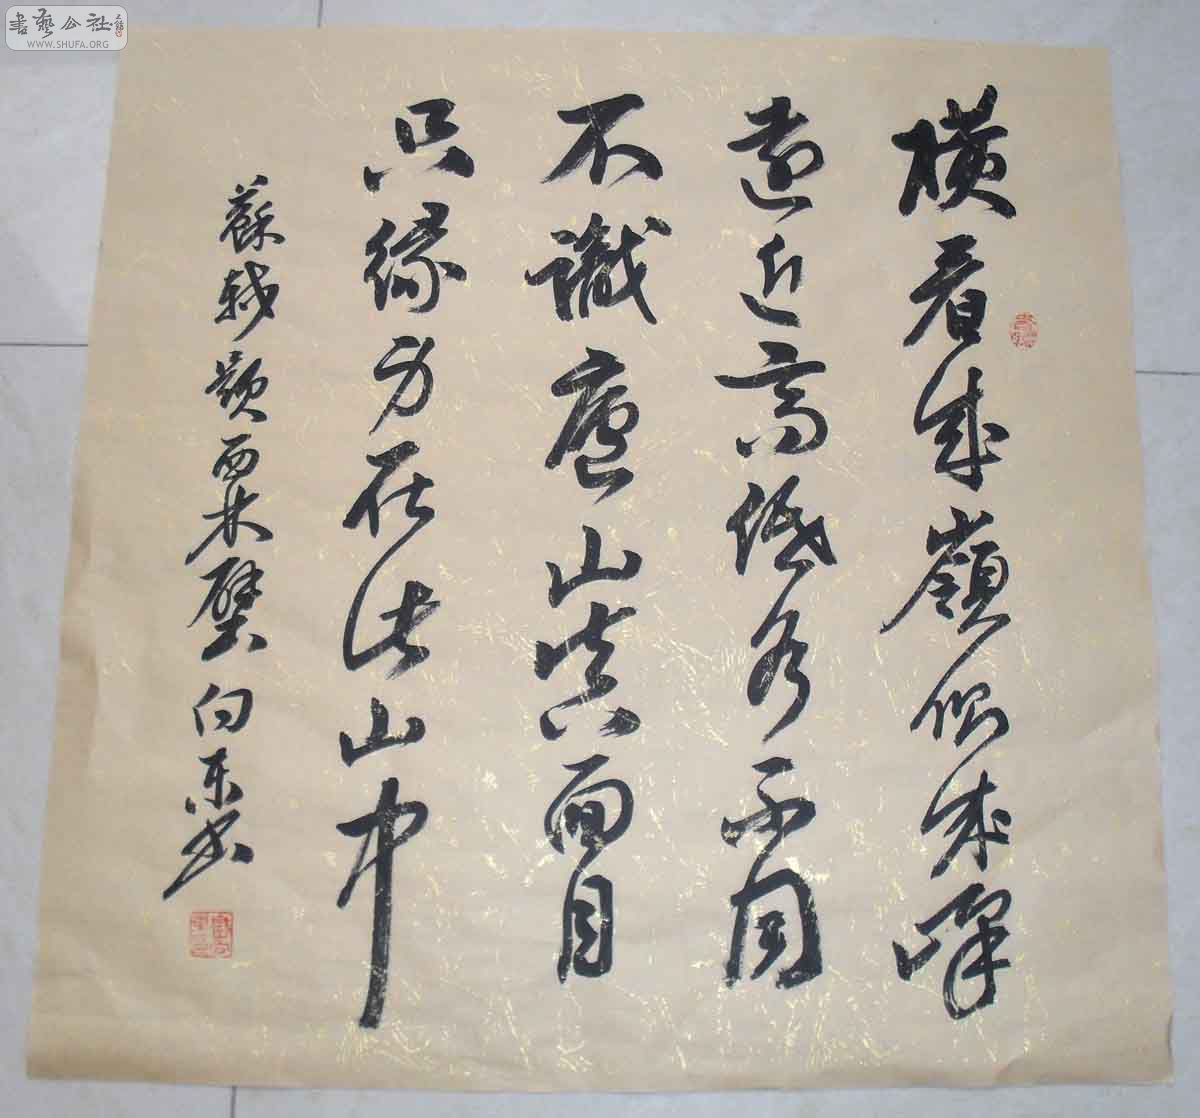 橫看成嶺側成峰
遠近高低各不同
不識廬山真面目
只緣身在此山中
蘇軾題西林壁 向東書
書藝公社
WWW.SHUFA.ORG